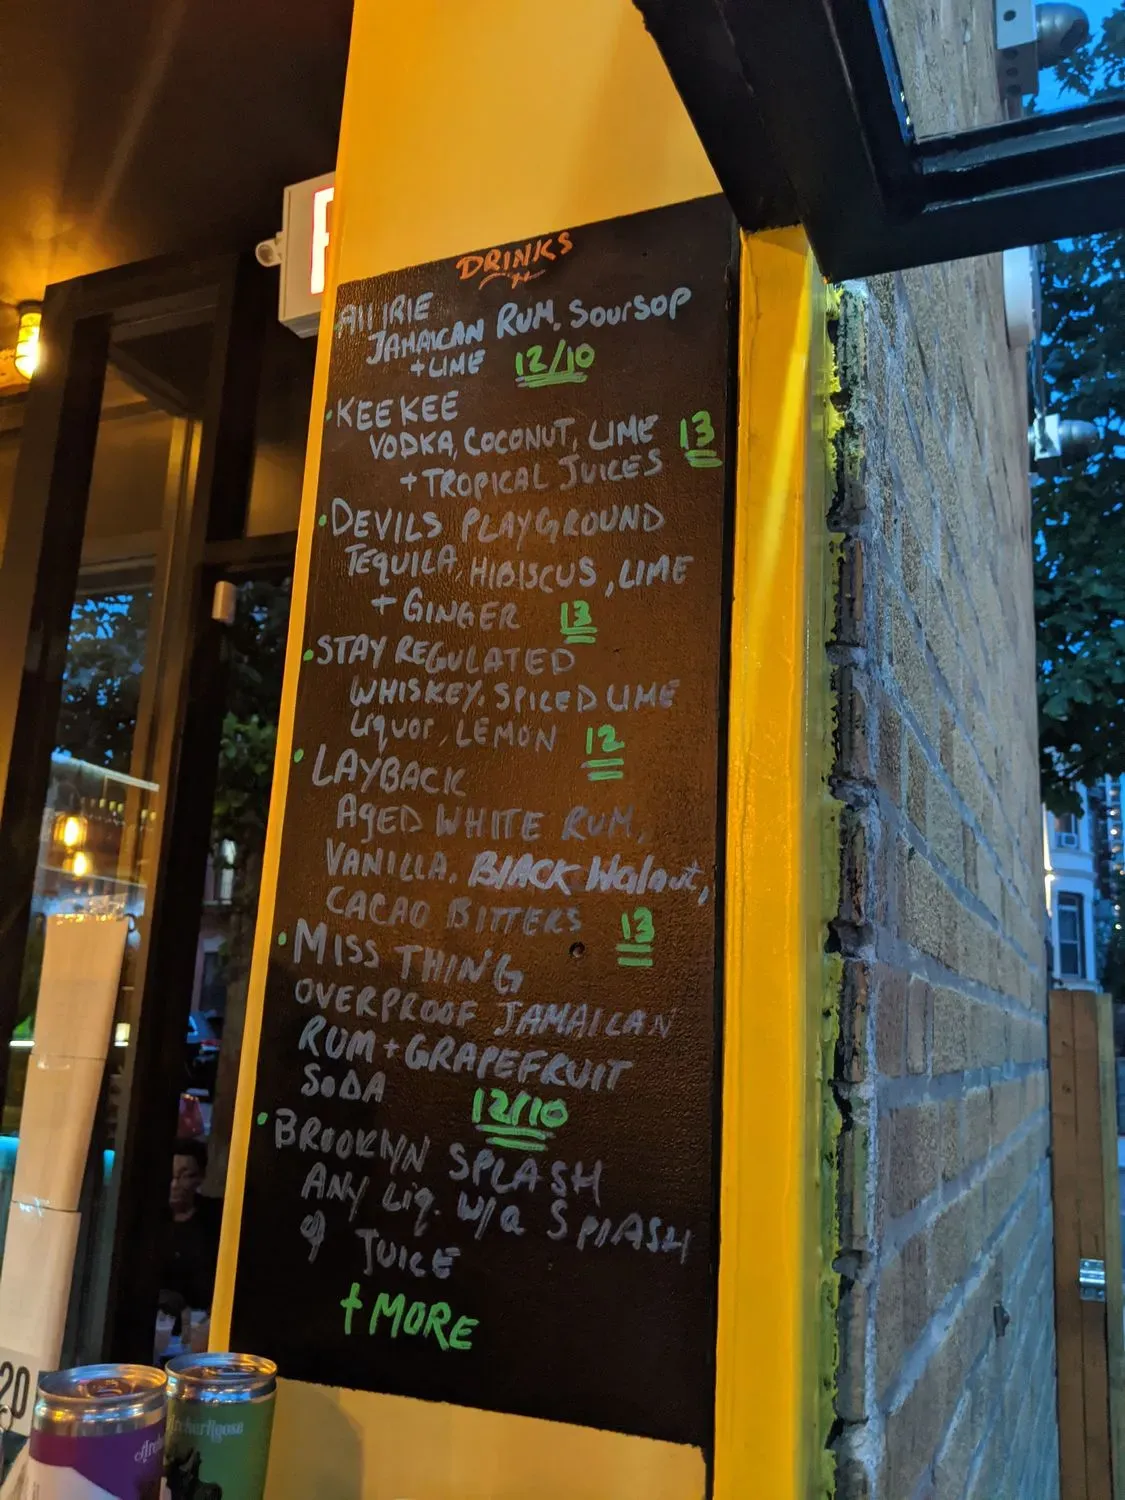 DRINKS
All IRIE
JAMAICAN RUM, Soursop
+ LIME 12/10
• KEE KEE
VODKA, COCONUT, LIME 13
+ TROPICAL JUICES
• DEVILS PLAYGROUND
TEQUILA, HIBISCUS, LIME
+ GINGER 13
• STAY REGULATED
WHISKEY, SPICED LIME
Liquor, LEMON 12
• LAYBACK
AgED WHITE RUM,
VANILLA, BLACK Walnut,
CACAO BITTERS 13
• MISS THING
OVERPROOF JAMAICAN
RUM + GRAPEFRUIT
SoDA 12/10
• BROOKLYN SPLASH
ANY Liq. w/a SPLASH
of JUICE
+ MORE
20
ArcherRoose